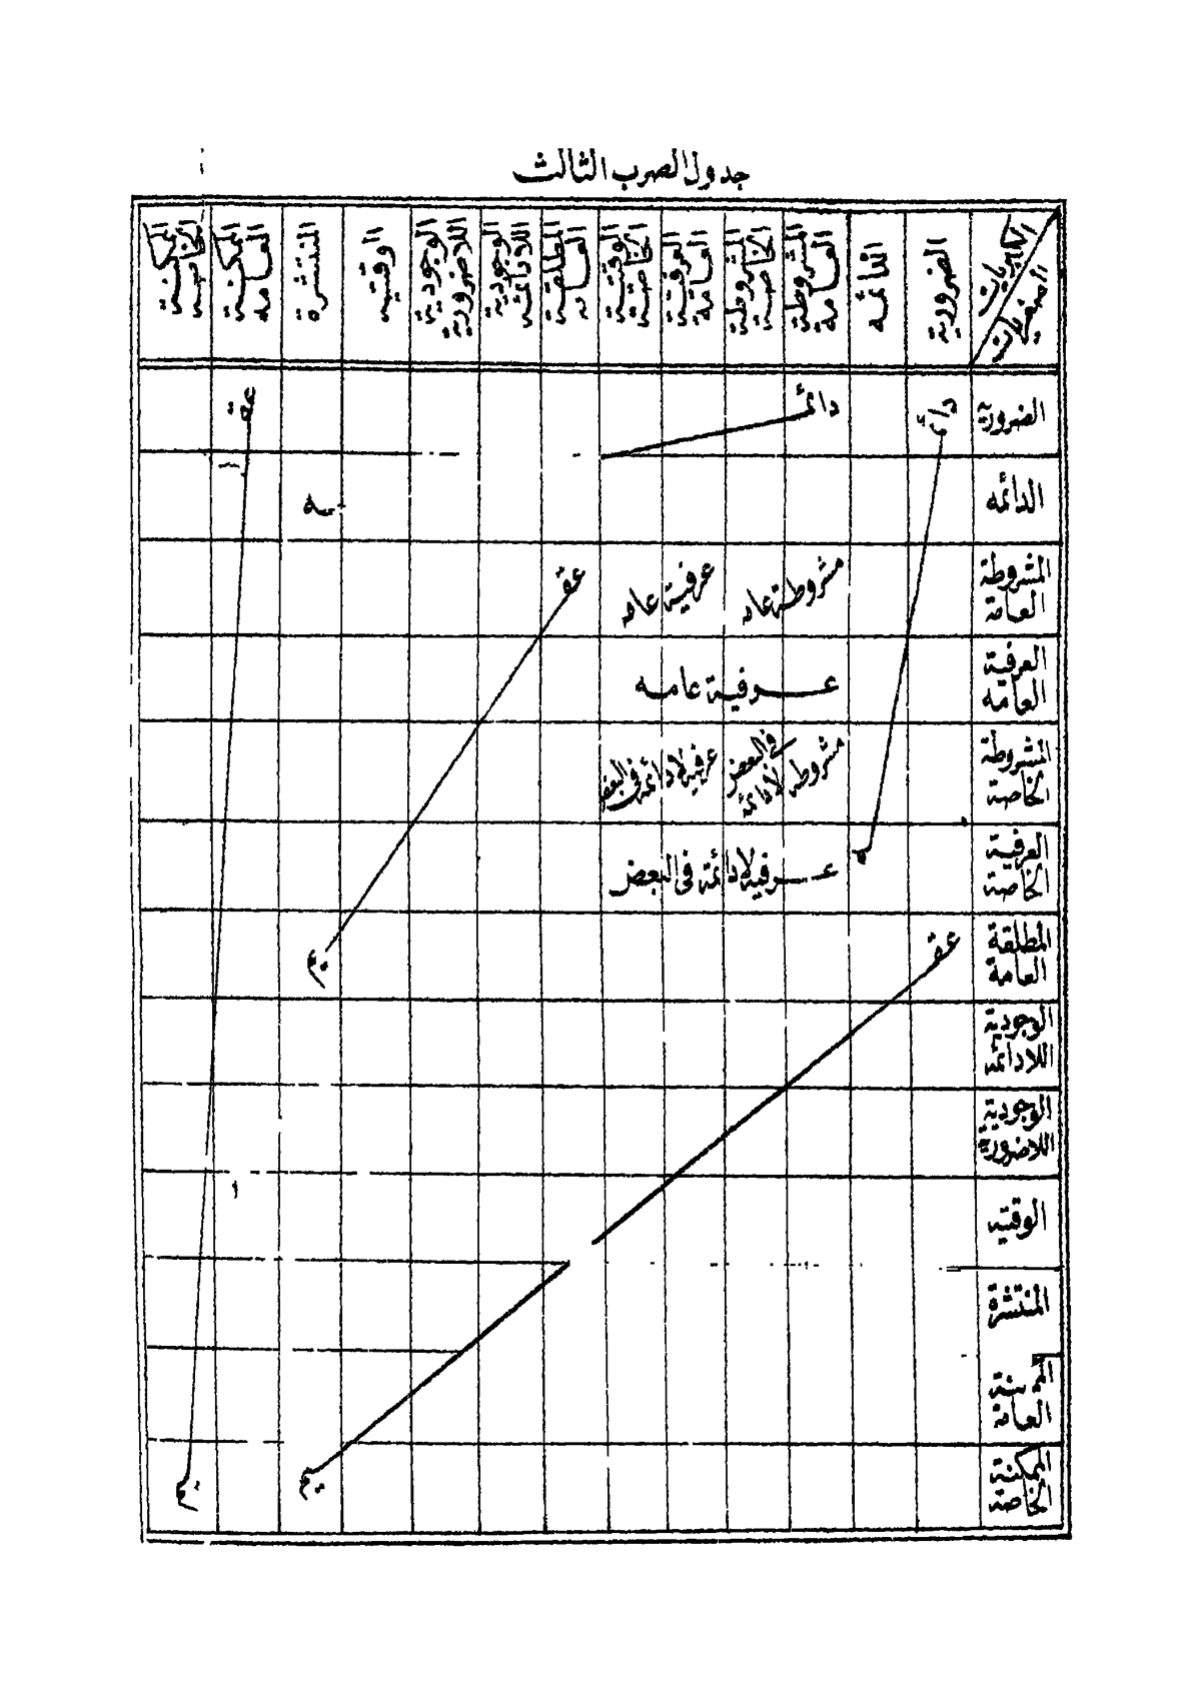 جدول الضرب الثالث
الكبريات
الصغريات
الضرورية
الدائمه
المشروطة العامة
المشروطة الخاصة
العرفية العامة
المطلقة العامه
الوجودية اللادائمة
الوجودية اللاضرورية
الوقتيه
المنتشرة
الممكنة العامه
الممكنة الخاصه
الضرورية
دائمة
دائمة
الدائمه
المشروطة العامة
مشروطة عامه
عرفية عامه
العرفية العامه
عرفية عامه
المشروطة الخاصة
مشروطة لا دائمة فى البعض
عرفية لا دائمة فى البعض
العرفية الخاصة
عرفية لا دائمة فى البعض
المطلقة العامة
عقـ
عقـ
عقـ
يم
الوجودية اللادائمه
الوجودية اللاضرورية
الوقتيه
المنتشرة
الممكنة العامة
الممكنة الخاصة
يم
يم